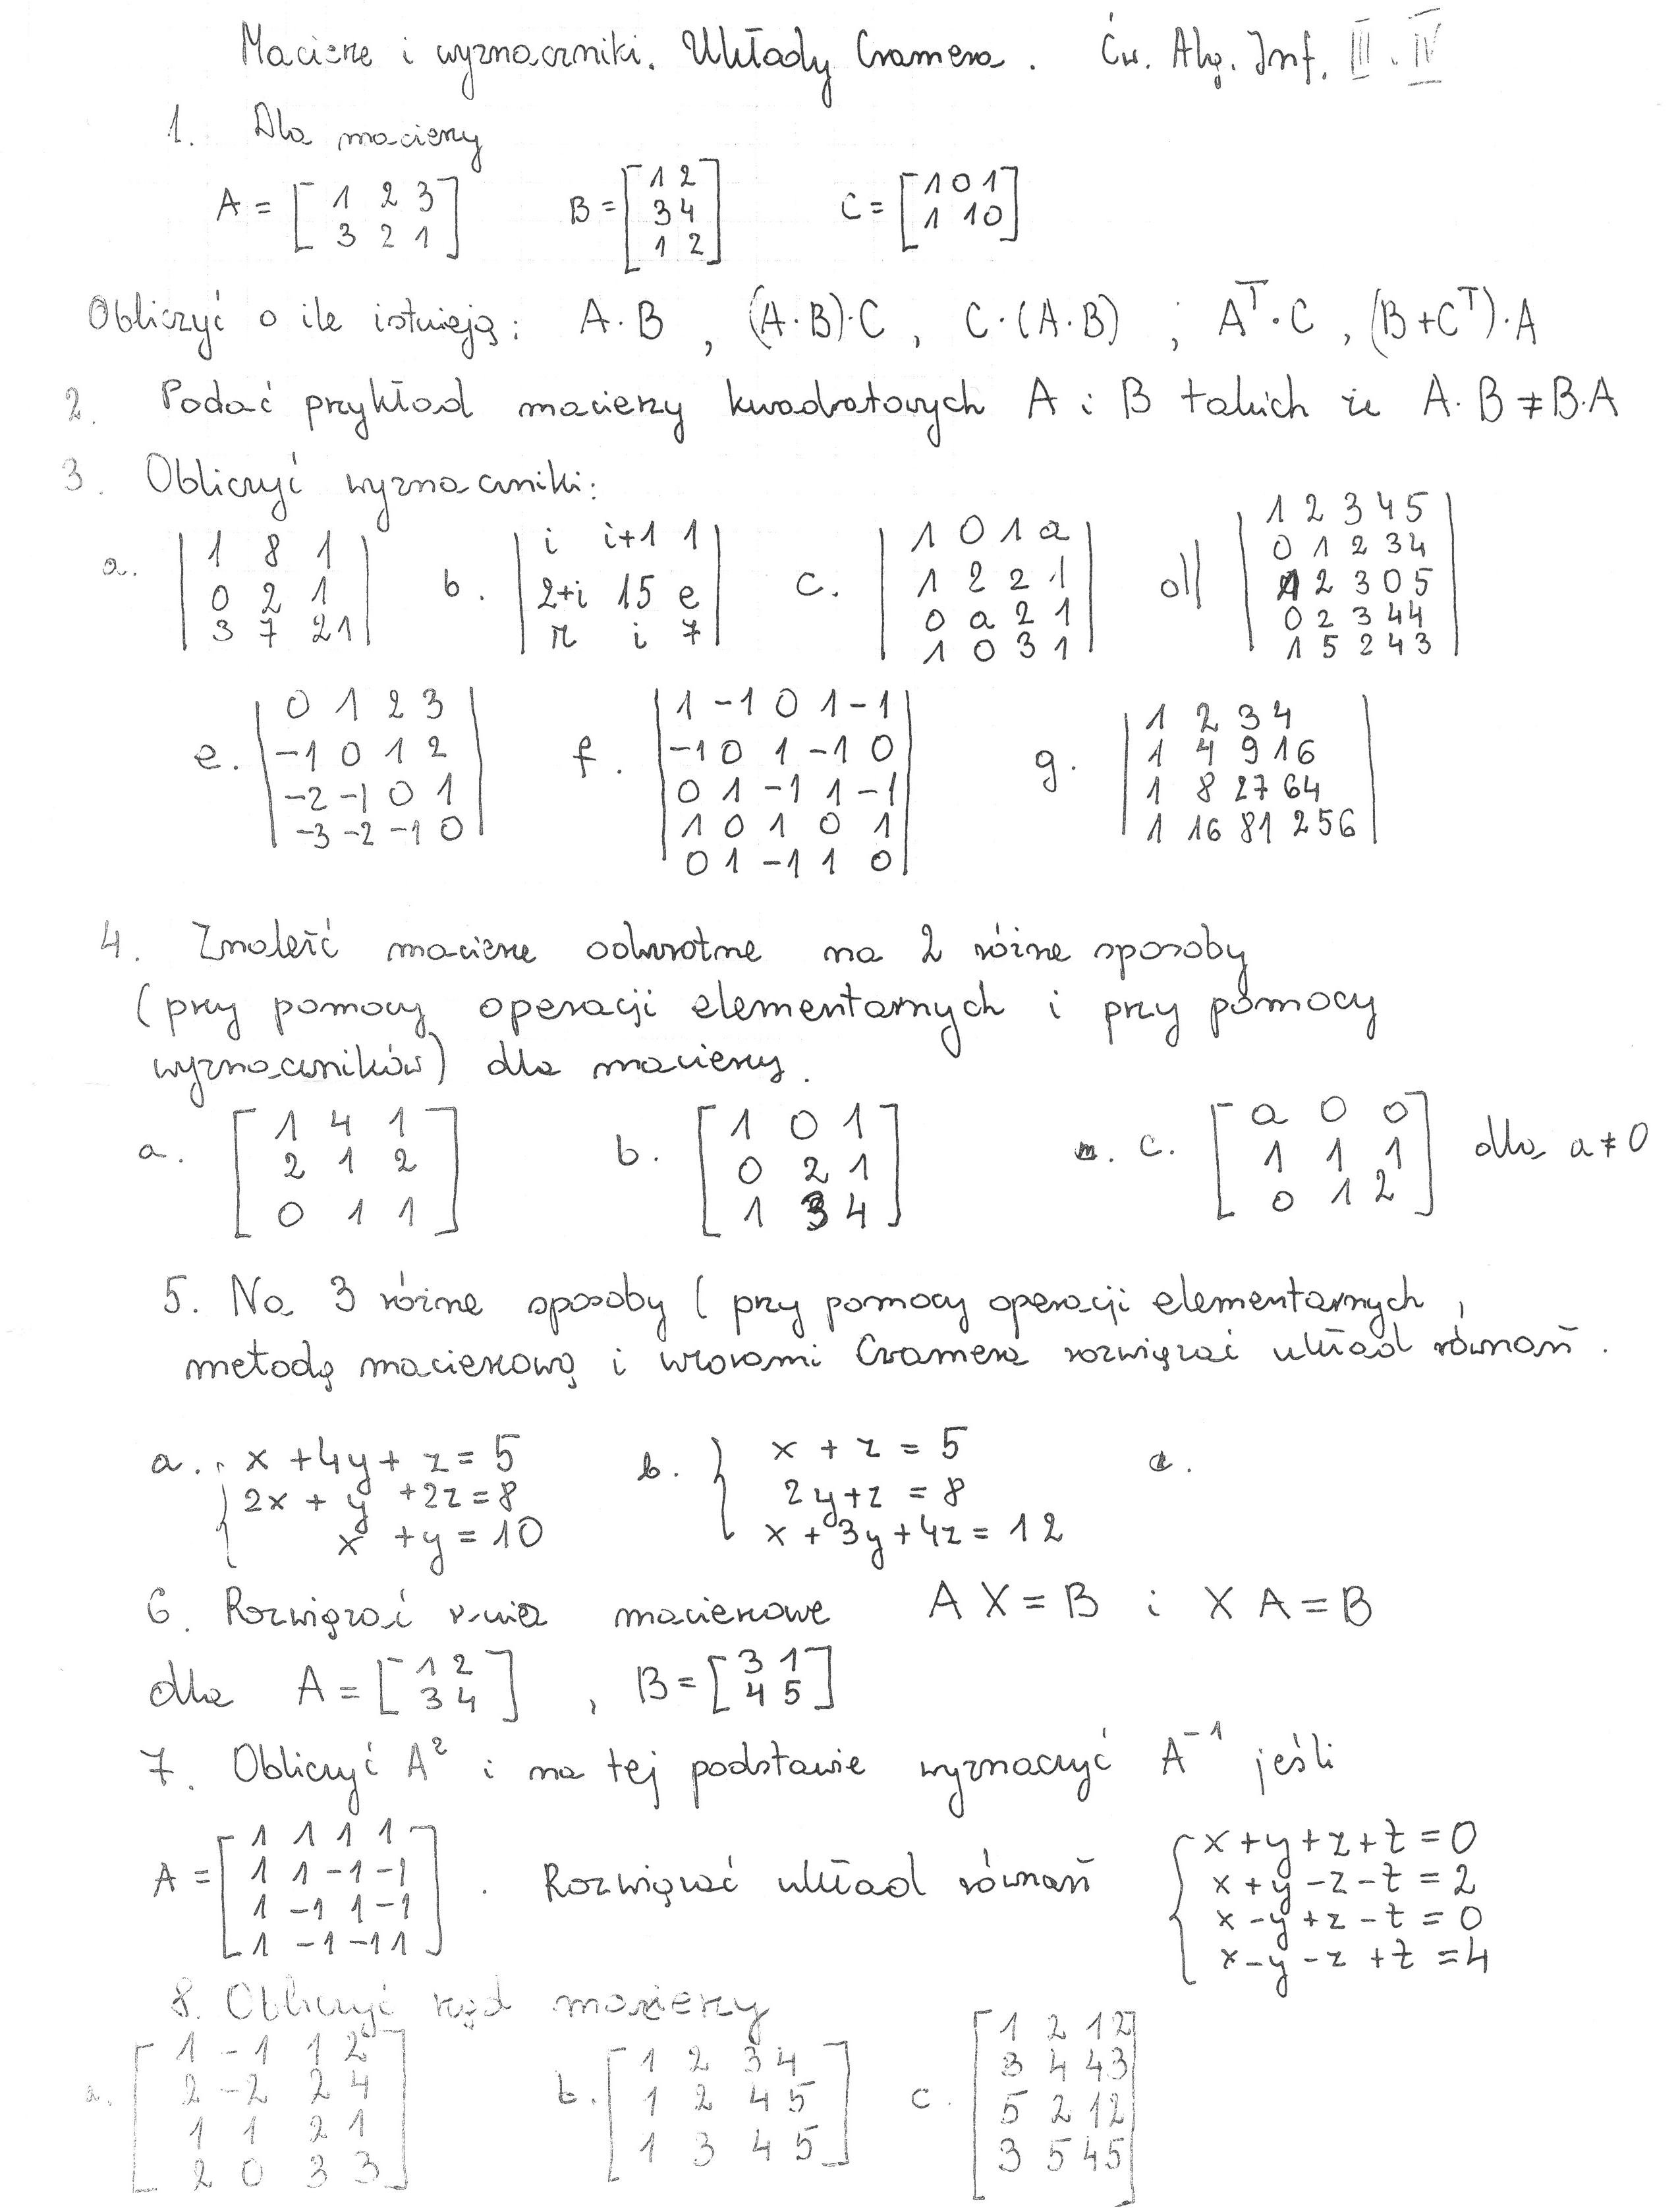 Macierze i wyznaczniki. Układy Cramera. Ćw. Alg. Inf. III i IV
1. Dla macierzy
A = [ 1 2 3 ; 3 2 1 ] B = [ 1 2 ; 3 4 ; 1 2 ] C = [ 1 0 1 ; 1 1 0 ]
Obliczyć o ile istnieją: A·B , (A·B)·C , C·(A·B) ; A^T·C , (B+C^T)·A
2. Podać przykład macierzy kwadratowych A i B takich że A·B ≠ B·A
3. Obliczyć wyznaczniki:
a. | 1 8 1 ; 0 2 1 ; 3 7 21 | b. | i i+1 1 ; 2+i 15 e ; π i 7 | c. | 1 0 1 a ; 1 2 2 1 ; 0 a 2 1 ; 1 0 3 1 | d) | 1 2 3 4 5 ; 0 1 2 3 4 ; 1 2 3 0 5 ; 0 2 3 4 4 ; 1 5 2 4 3 |
e. | 0 1 2 3 ; -1 0 1 2 ; -2 -1 0 1 ; -3 -2 -1 0 | f. | 1 -1 0 1 -1 ; -1 0 1 -1 0 ; 0 1 -1 1 -1 ; 1 0 1 0 1 ; 0 1 -1 1 0 | g. | 1 2 3 4 ; 1 4 9 16 ; 1 8 27 64 ; 1 16 81 256 |
4. Znaleźć macierze odwrotne na 2 różne sposoby
(przy pomocy operacji elementarnych i przy pomocy
wyznaczników) dla macierzy.
a. [ 1 4 1 ; 2 1 2 ; 0 1 1 ] b. [ 1 0 1 ; 0 2 1 ; 1 3 4 ] c. [ a 0 0 ; 1 1 1 ; 0 1 2 ] dla a ≠ 0
5. Na 3 różne sposoby (przy pomocy operacji elementarnych,
metodą macierzową i wzorami Cramera rozwiązać układ równań.
a. { x + 4y + z = 5 b. { x + z = 5 c.
2x + y + 2z = 8 2y + z = 8
x + y = 10 x + 3y + 4z = 12
6. Rozwiązać r-nia macierzowe A X = B i X A = B
dla A = [ 1 2 ; 3 4 ] , B = [ 3 1 ; 4 5 ]
7. Obliczyć A² i na tej podstawie wyznaczyć A⁻¹ jeśli
A = [ 1 1 1 1 ; 1 1 -1 -1 ; 1 -1 1 -1 ; 1 -1 -1 1 ] . Rozwiązać układ równań { x + y + z + t = 0
x + y - z - t = 2
x - y + z - t = 0
x - y - z + t = 4
8. Obliczyć rząd macierzy
a. [ 1 -1 1 2 ; 2 -2 2 4 ; 1 1 2 1 ; 2 0 3 3 ] b. [ 1 2 3 4 ; 1 2 4 5 ; 1 3 4 5 ] c. [ 1 2 1 2 ; 3 4 4 3 ; 5 2 1 2 ; 3 5 4 5 ]